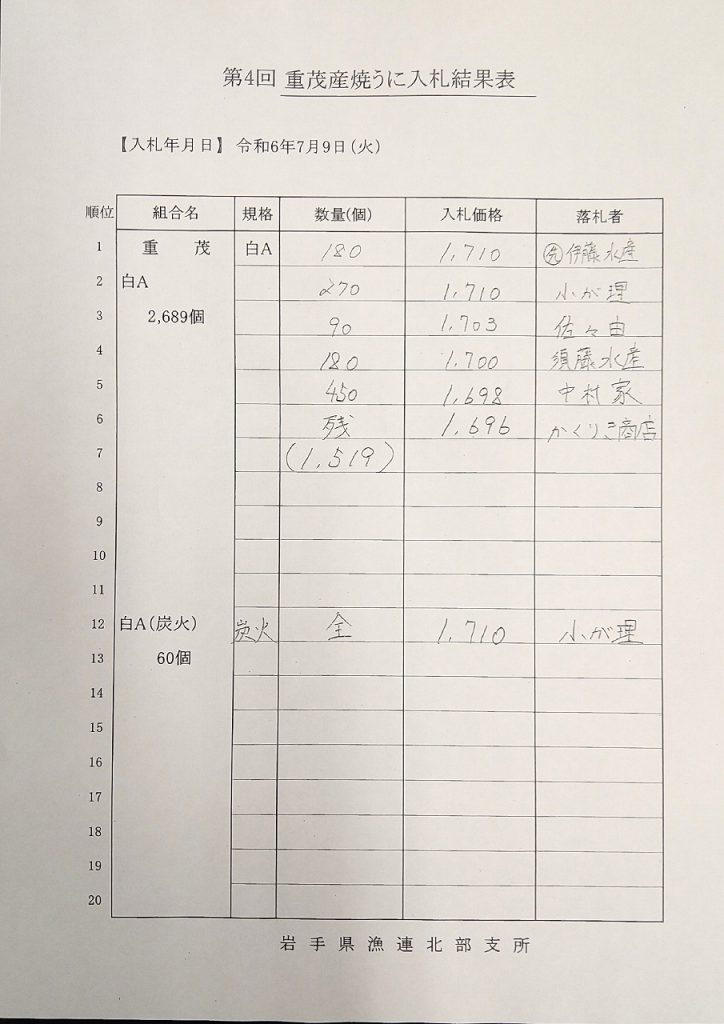 第4回 重茂産焼うに入札結果表
【入札年月日】 令和6年7月9日(火)
順位 組合名 規格 数量(個) 入札価格 落札者
1 重 茂 白A 180 1,710 ㊝伊藤水産
2 白A 270 1,710 小が理
3 2,689個 90 1,703 佐々由
4 180 1,700 須藤水産
5 450 1,698 中村家
6 残 1,696 かくりき商店
7 (1,519)
8
9
10
11
12 白A(炭火) 炭火 全 1,710 小が理
13 60個
14
15
16
17
18
19
20
岩手県漁連北部支所